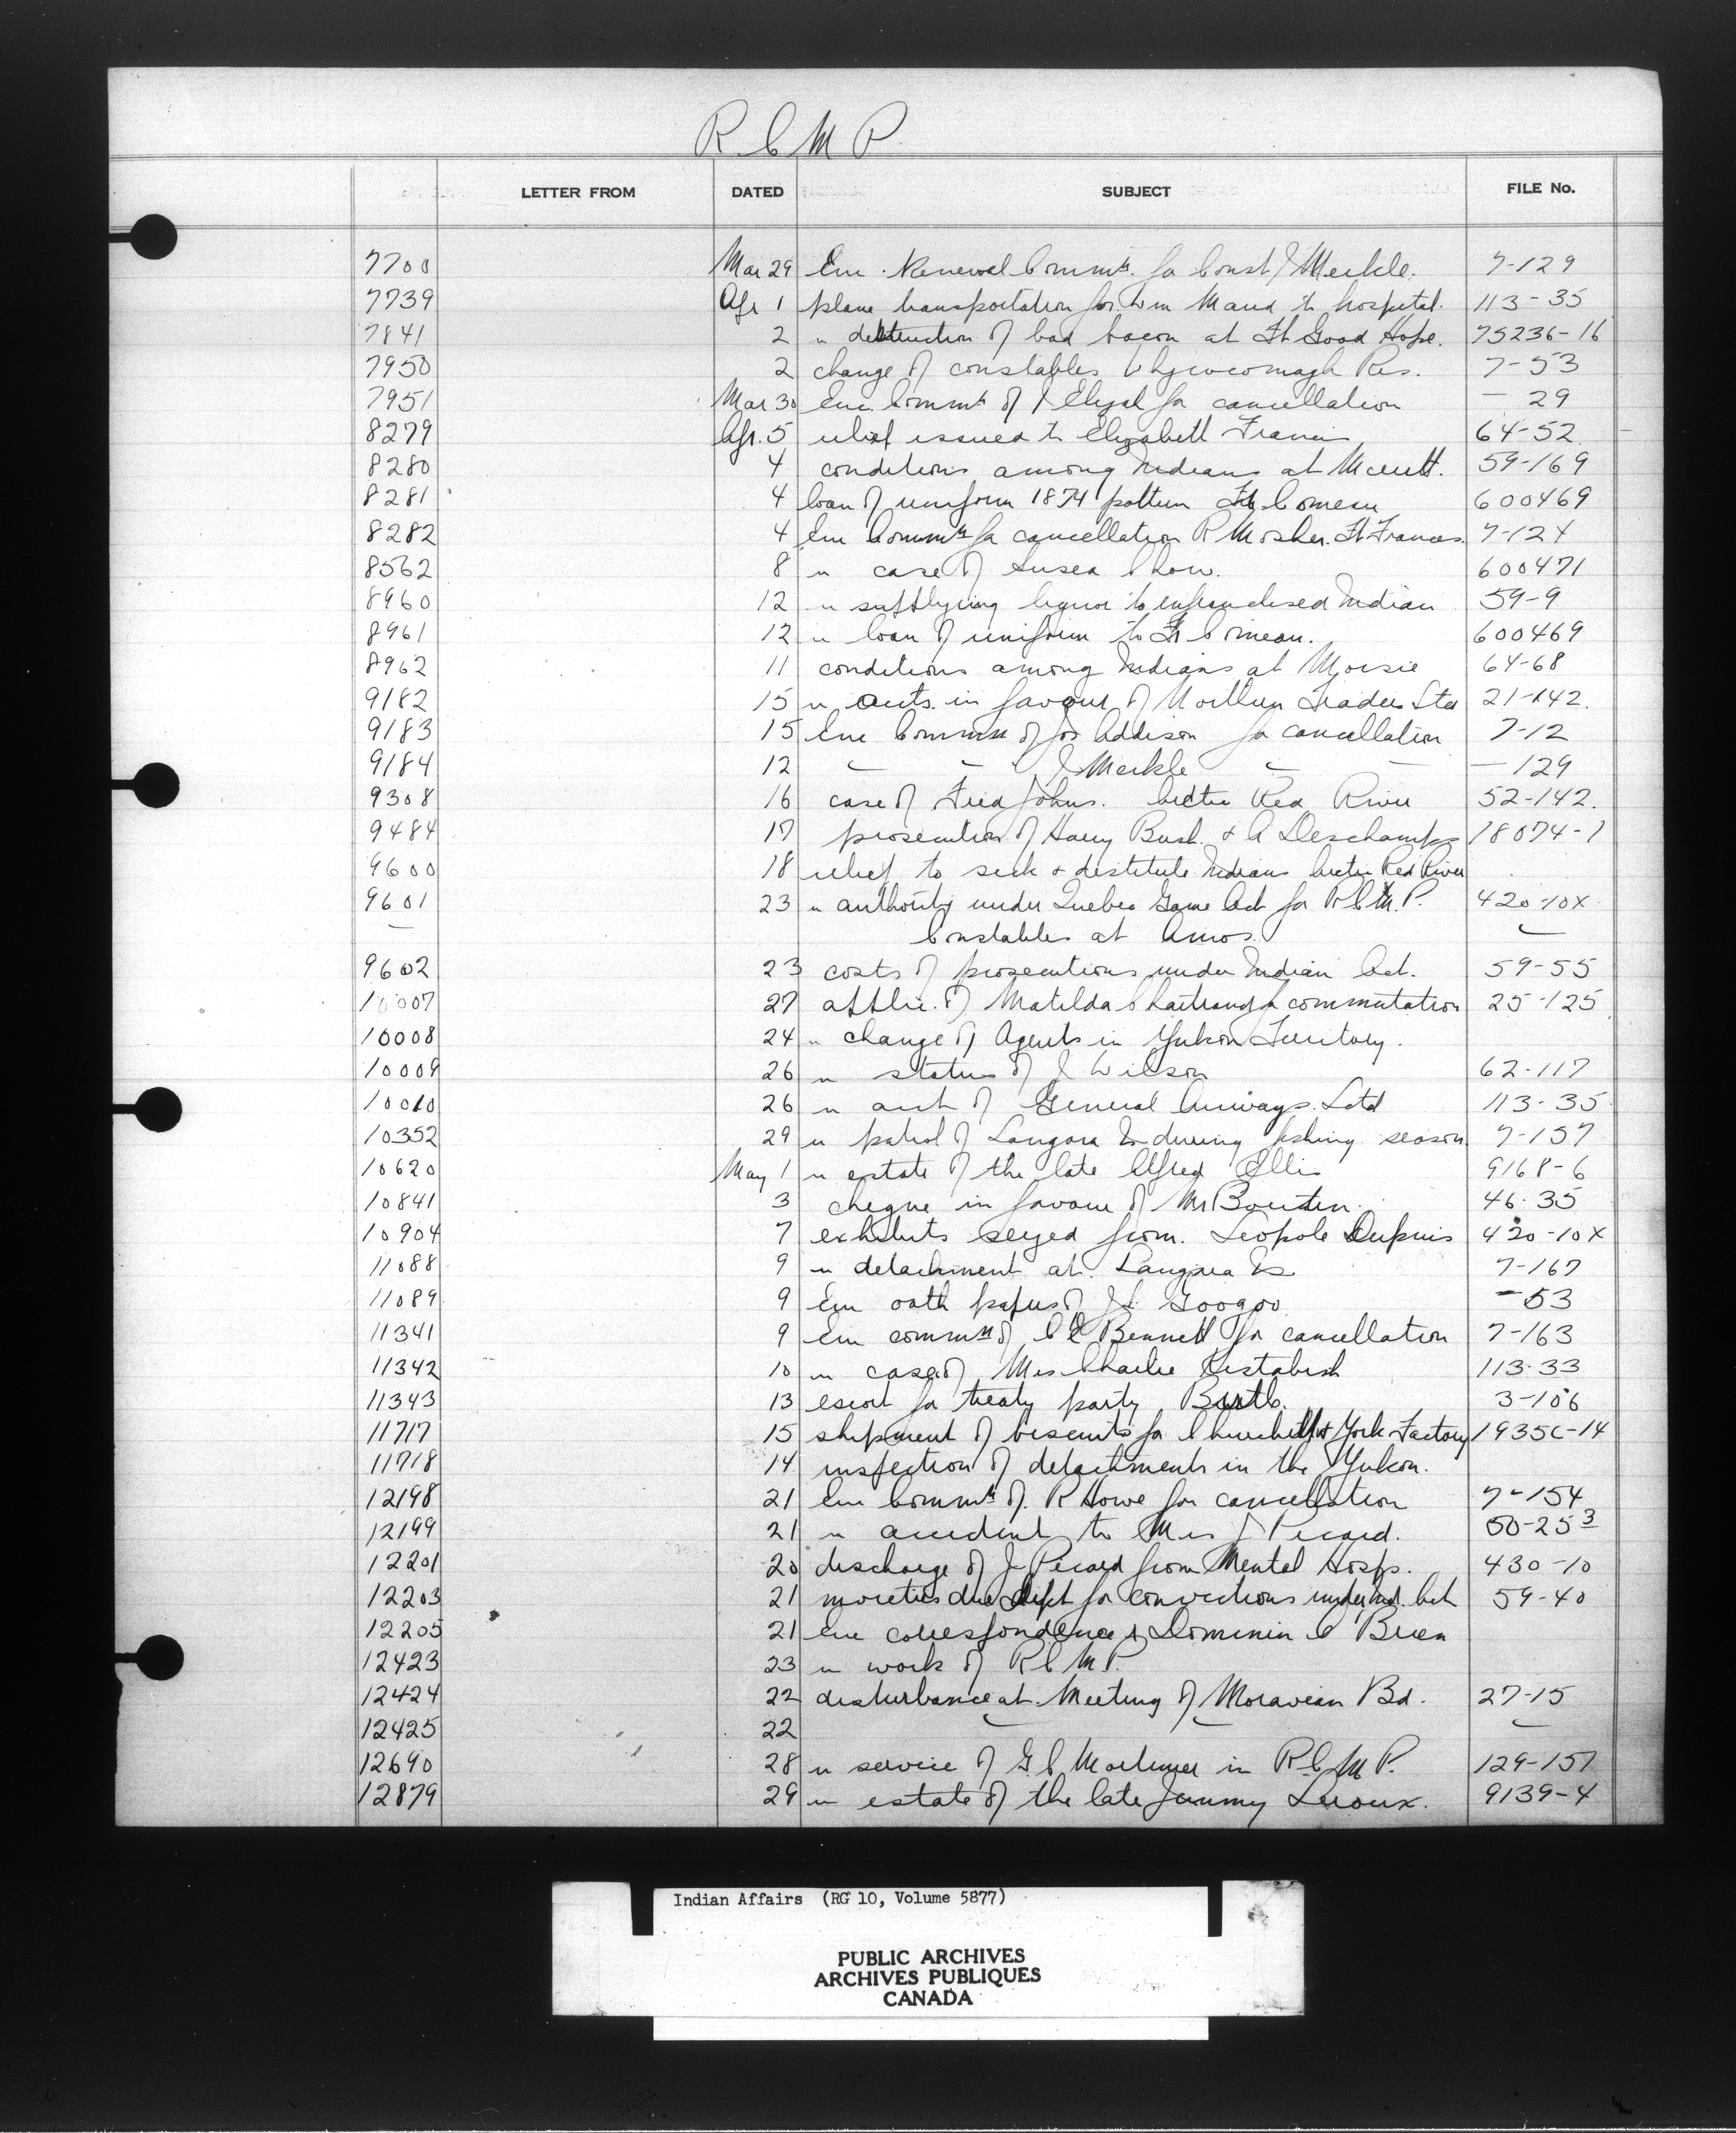 R C M P.
LETTER FROM DATED SUBJECT FILE No.
7700 Mar 29 Enc. Renewal Commn. for Const J Merkle. 7-129
7739 Apr 1 plane transportation for Wm to hospital. 113-35
7841 2 " destruction of bad bacon at Ft Good Hope. 75236-16
7950 2 change of constables Whycocomagh Res. 7-53
7951 Mar 30 Enc. Commn of J for cancellation — 29
8279 Apr. 5 relief issued to Elizabeth Francis 64-52
8280 4 conditions among Indians at 59-169
8281 4 loan of uniform 1874 pattern Comeau 600469
8282 4 Enc Commn for cancellation R Mosher. Ft Frances. 7-124
8562 8 " case of Chow. 600471
8960 12 " supplying liquor to enfranchised Indian 59-9
8961 12 " loan of uniform to Fr Comeau. 600469
8962 11 conditions among Indians at Moisie 64-68
9182 15 " accts. in favour of Northern Traders Ltd 21-142.
9183 15 Enc Commn of Jos Addison for cancellation 7-12
9184 12 — — J Merkle — — — 129
9308 16 case of Fred Johns. Arctic Red River 52-142.
9484 17 prosecution of Harry Bush & A Deschamps 18074-1
9600 18 relief to sick & destitute Indians Arctic Red River
9601 23 " authority under Quebec Game Act for R C M. P. 420-10x
— Constables at Amos. —
9602 23 costs of prosecutions under Indian Act. 59-55
10007 27 applic. of Matilda Chartrand for commutation 25-125
10008 24 " change of Agents in Yukon Territory.
10009 26 " status of J Wilson 62-117
10010 26 " acct of General Airways Ltd 113-35
10352 29 " patrol of Langara Is during fishing season. 7-157
10620 May 1 " estate of the late Alfred Ellis 9168-6
10841 3 cheque in favour of Mr 46-35
10904 7 exhibits seized from. Leopole Dupuis 420-10x
11088 9 " detachment at. Langara Is 7-167
11089 9 Enc oath papers of J Googoo — 53
11341 9 Enc commn of C E Bennett for cancellation 7-163
11342 10 " case of Mrs Charlie Kistabish 113-33
11343 13 escort for treaty party 3-106
11717 15 shipment of biscuits for Churchill & York Factory 1935C-14
11718 14 inspection of detachments in the Yukon.
12198 21 Enc Commn of. R Howe for cancellation 7-154
12199 21 " accident to Mrs J Picard. 50-25 3
12201 20 discharge of J Picard from Mental Hosp. 430-10
12203 21 moieties due Dept for convictions under Ind. Act 59-40
12205 21 Enc correspondence
12423 23 " work of R C M P.
12424 22 disturbance at Meeting of Moravian Bd. 27-15
12425 22 — — —
12690 28 " service of G C Mortimer in R. C M P. 129-157
12879 29 " estate of the late Jimmy Leroux. 9139-4
Indian Affairs (RG 10, Volume 5877)
PUBLIC ARCHIVES
ARCHIVES PUBLIQUES
CANADA